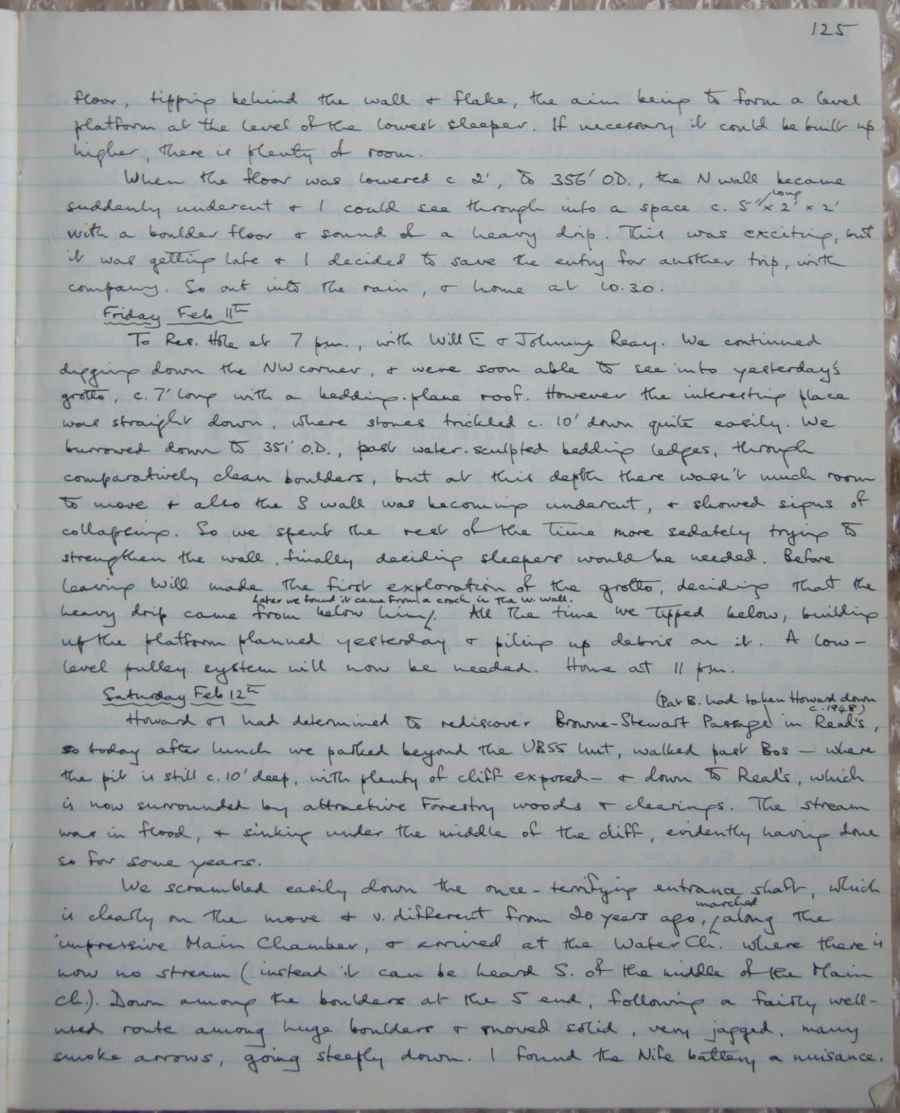 125
floor, tipping behind the wall & flake, the aim being to form a level
platform at the level of the lowest sleeper. If necessary it could be built up
higher, there is plenty of room.
When the floor was lowered c 2', to 356' O.D., the N wall became
suddenly undercut & I could see through into a space c. 5' long x 2' x 2'
with a boulder floor & sound of a heavy drip. This was exciting, but
it was getting late & I decided to save the entry for another trip, with
company. So out into the rain, & home at 10.30.
Friday Feb 11th
To Res. Hole at 7 p.m., with Will E & Johnny Reay. We continued
digging down the NW corner, & were soon able to see into yesterday's
grotto, c. 7' long with a bedding-plane roof. However the interesting place
was straight down, where stones trickled c. 10' down quite easily. We
burrowed down to 351' O.D., past water-sculpted bedding ledges, through
comparatively clean boulders, but at this depth there wasn't much room
to move & also the S wall was becoming undercut, & showed signs of
collapsing. So we spent the rest of the time more sedately trying to
strengthen the wall, finally deciding sleepers would be needed. Before
leaving Will made the first exploration of the grotto, deciding that the
Later we found it came from a crack in the W. wall.
heavy drip came from below him. All the time we tipped below, building
up the platform planned yesterday & piling up debris on it. A low-
level pulley system will now be needed. Home at 11 p.m.
Saturday Feb 12th
(Pat B. had taken Howard down
c. 1948)
Howard & I had determined to rediscover Browne-Stewart Passage in Read's,
so today after lunch we parked beyond the UBSS hut, walked past Bos — where
the pit is still c. 10' deep, with plenty of cliff exposed — & down to Read's, which
is now surrounded by attractive Forestry woods & clearings. The stream
was in flood, & sinking under the middle of the cliff, evidently having done
so for some years.
We scrambled easily down the once-terrifying entrance shaft, which
is clearly on the move & v. different from 20 years ago, marched along the
impressive Main Chamber, & arrived at the Water Ch. where there is
now no stream (instead it can be heard S. of the middle of the Main
Ch). Down among the boulders at the S end, following a fairly well-
used route among huge boulders & moved solid, very jagged, many
smoke arrows, going steeply down. I found the Nife battery a nuisance.